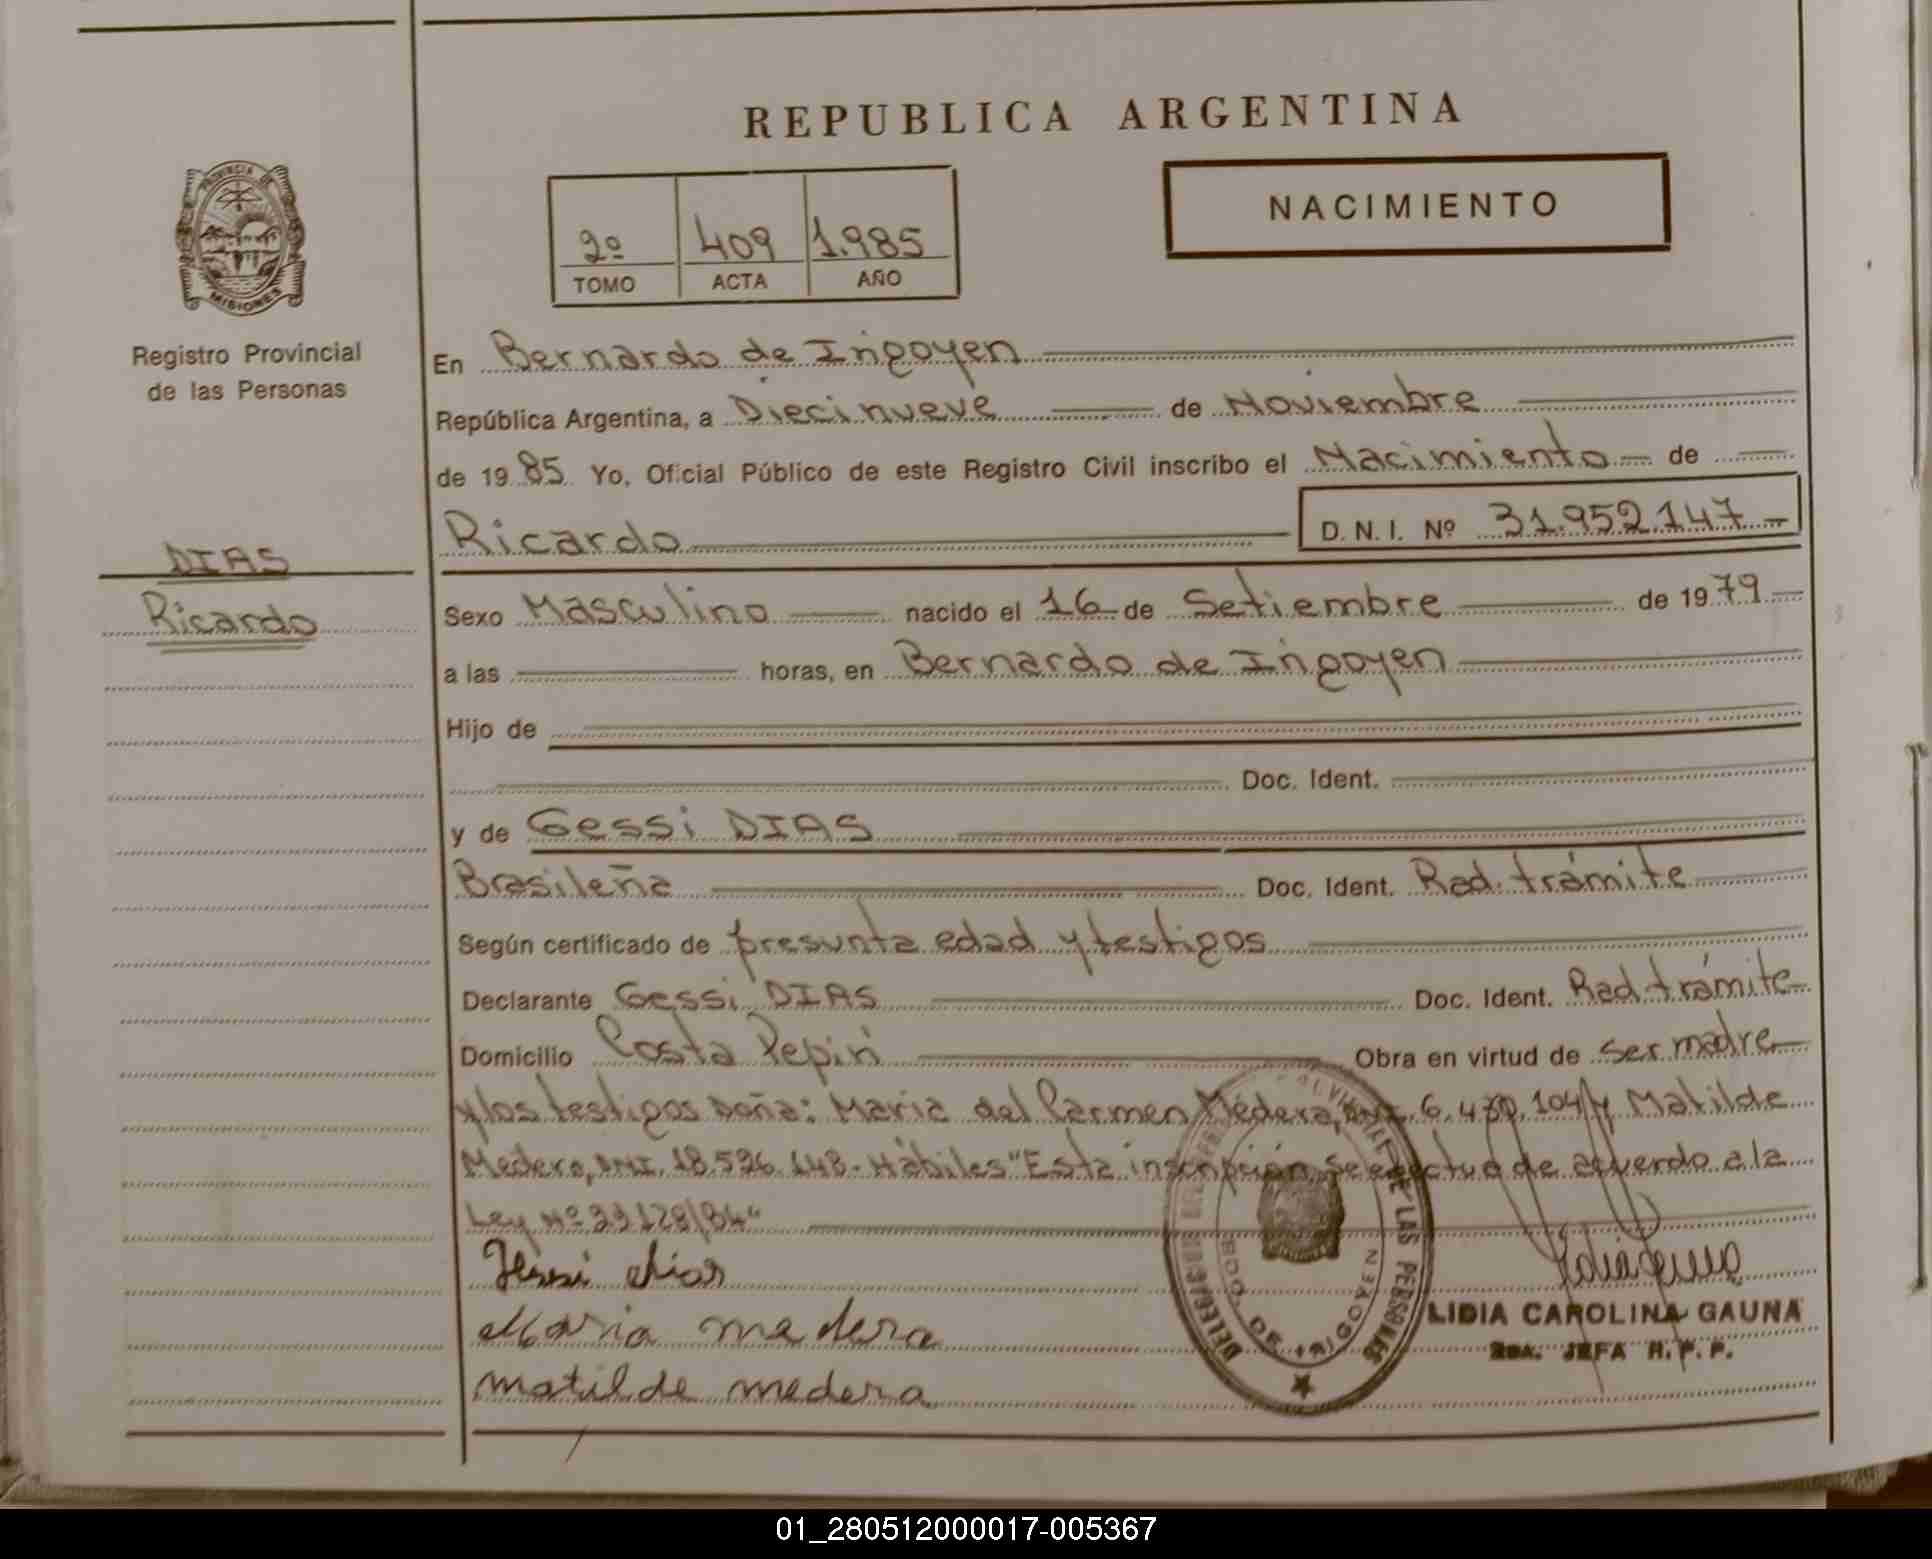 REPUBLICA ARGENTINA
PROVINCIA DE MISIONES
Registro Provincial
de las Personas
NACIMIENTO
2º 409 1.985
TOMO ACTA AÑO
En Bernardo de Irigoyen
República Argentina, a Diecinueve de Noviembre
de 1985 Yo, Oficial Público de este Registro Civil inscribo el Nacimiento de
Ricardo D.N.I. Nº 31.952.147
DIAS
Ricardo
Sexo Masculino nacido el 16 de Setiembre de 1979
a las horas, en Bernardo de Irigoyen
Hijo de
Doc. Ident.
y de Gessi DIAS
Brasileña Doc. Ident. Rad. trámite
Según certificado de presunta edad y testigos
Declarante Gessi DIAS Doc. Ident. Rad. trámite
Domicilio Costa Pepiri Obra en virtud de ser madre
y los testigos Doña: Maria del Carmen Medera, DNI. 6. 104/y Matilde
Medera, DNI. 18.596.148- Hábiles "Esta inscripción se efectua de acuerdo a la
Ley Nº 23128/84"
Jessi dias
Maria medera
matilde medera
DE LAS PERSONAS
BDO. DE IRIGOYEN
LIDIA CAROLINA GAUNA
2DA. JEFA R.P.P.
01_280512000017-005367